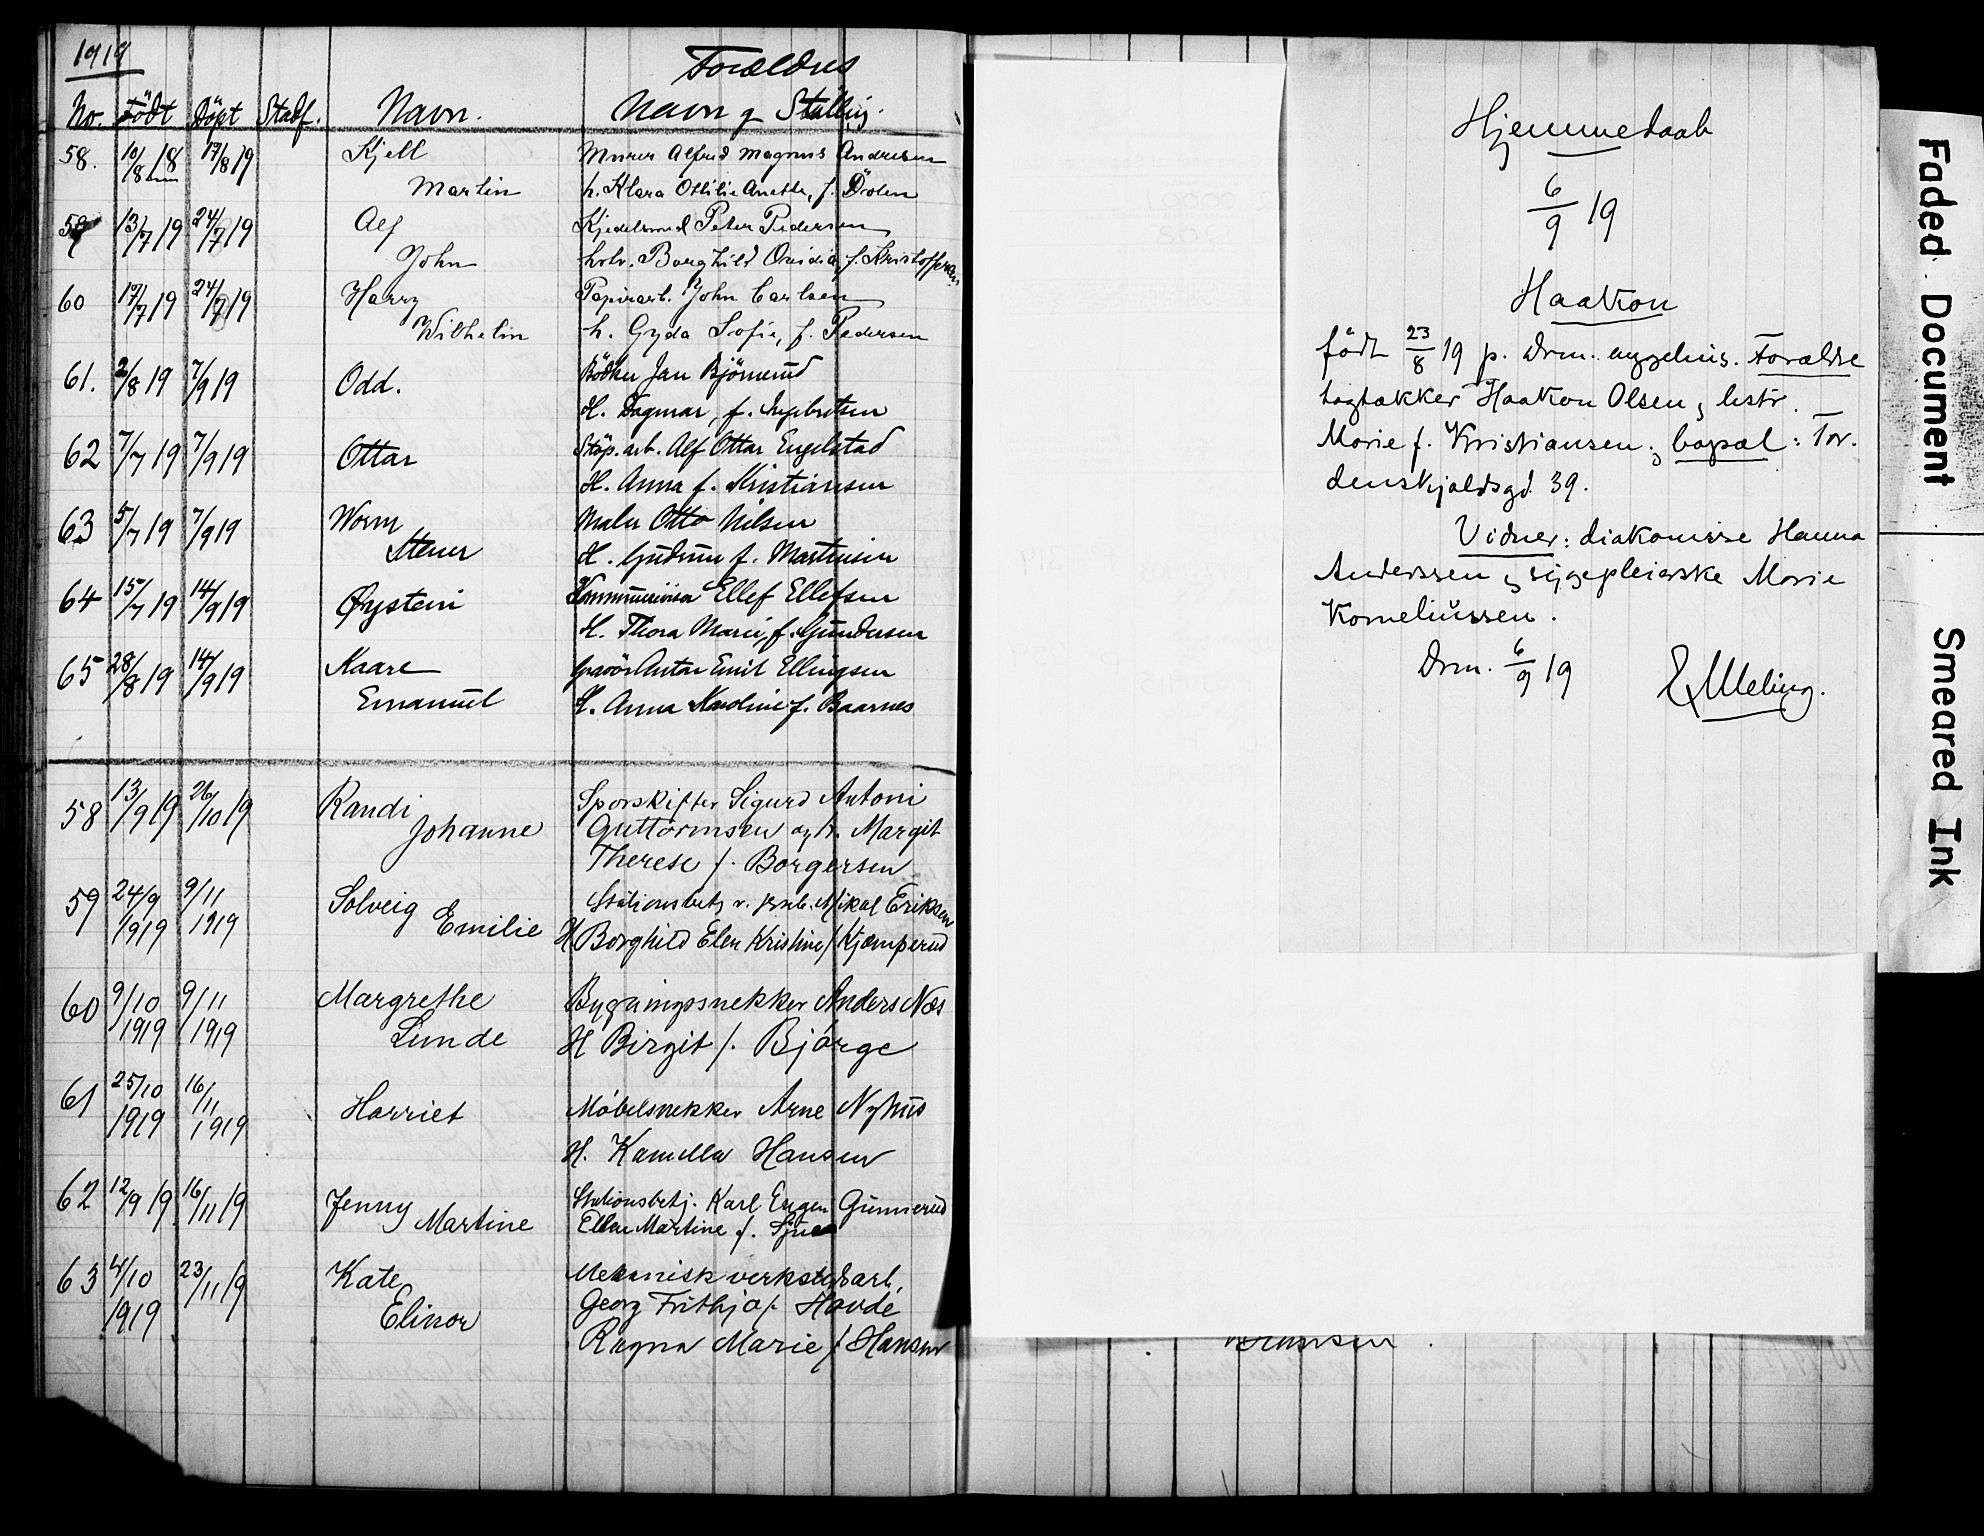 1919
Forældres
No. Födt Döpt Stadf. Navn. Navn og Stilling.
58. 10/8 18 17/8 19 Kjell Murer Alfred Magnus Andresen
Martin h. Klara Ottilie Anette, f.
59 13/7 19 24/7 19 Alf Kjedelsmed Peter Pedersen
John hstr. Borghild Ovidia, f. Kristoffersen
60 17/7 19 24/7 19 Harry Papirarb. John Carlsen
Wilhelm h. Gyda Sofie, f. Pedersen
61. 2/8 19 7/9 19 Odd. Bödker Jan Björnerud
H. Dagmar, f. Ingebretsen
62 7/7 19 7/9 19 Ottar Stöp. arb. Alf Ottar Engelstad
H. Anna f. Kristiansen
63 5/7 19 7/9 19 Worm Maler Otto Nilsen
Stener H. Gudrun f. Martinsen
64 15/7 19 14/9 19 Øystein Ellef Ellefsen
H. Thora Marie, f. Gundersen
65 28/8 19 14/9 19 Kaare Gravör Anton Emil Ellingsen
Emanuel H. Anna Karoline f. Baarnes
58 13/9 19 26/10 19 Randi Sporskifter Sigurd Antoni
Johanne Guttormsen og h. Margit
Therese f. Borgersen
59 24/9 1919 9/11 1919 Solveig Stationsbetj v. jernb. Mikal Eriksen
Emilie H Borghild Elen Kristine f Kjæmperud
60 9/10 1919 9/11 1919 Margrethe Bygningssnekker Anders Næs
Lunde H Birgit f. Björge
61 25/10 1919 16/11 1919 Harriet Möbelsnekker Arne Nyhus
H. Kamilla Hansen
62 12/9 19 16/11 19 Jenny Stationsbetj. Karl Eugen Gunnerud
Martine Ellen Martine f.
63 4/10 1919 23/11 19 Kate Mekanisk verkstedarb.
Elinor Georg Frithjof Havde
Ragna Marie f Hansen
Hjemmedaab
6/9 19
Haakon
født 23/8 19 p. Drm. sygehus. Forældre
tagtækker Haakon Olsen og hstr.
Marie f. Kristiansen; bopæl: Tor-
denskjoldsgd. 39.
Vidner: diakonisse Hanna
Anderssen og sygepleierske Marie
Korneliussen.
Drm. 6/9 19 E Meling.
Faded Document
Smeared Ink